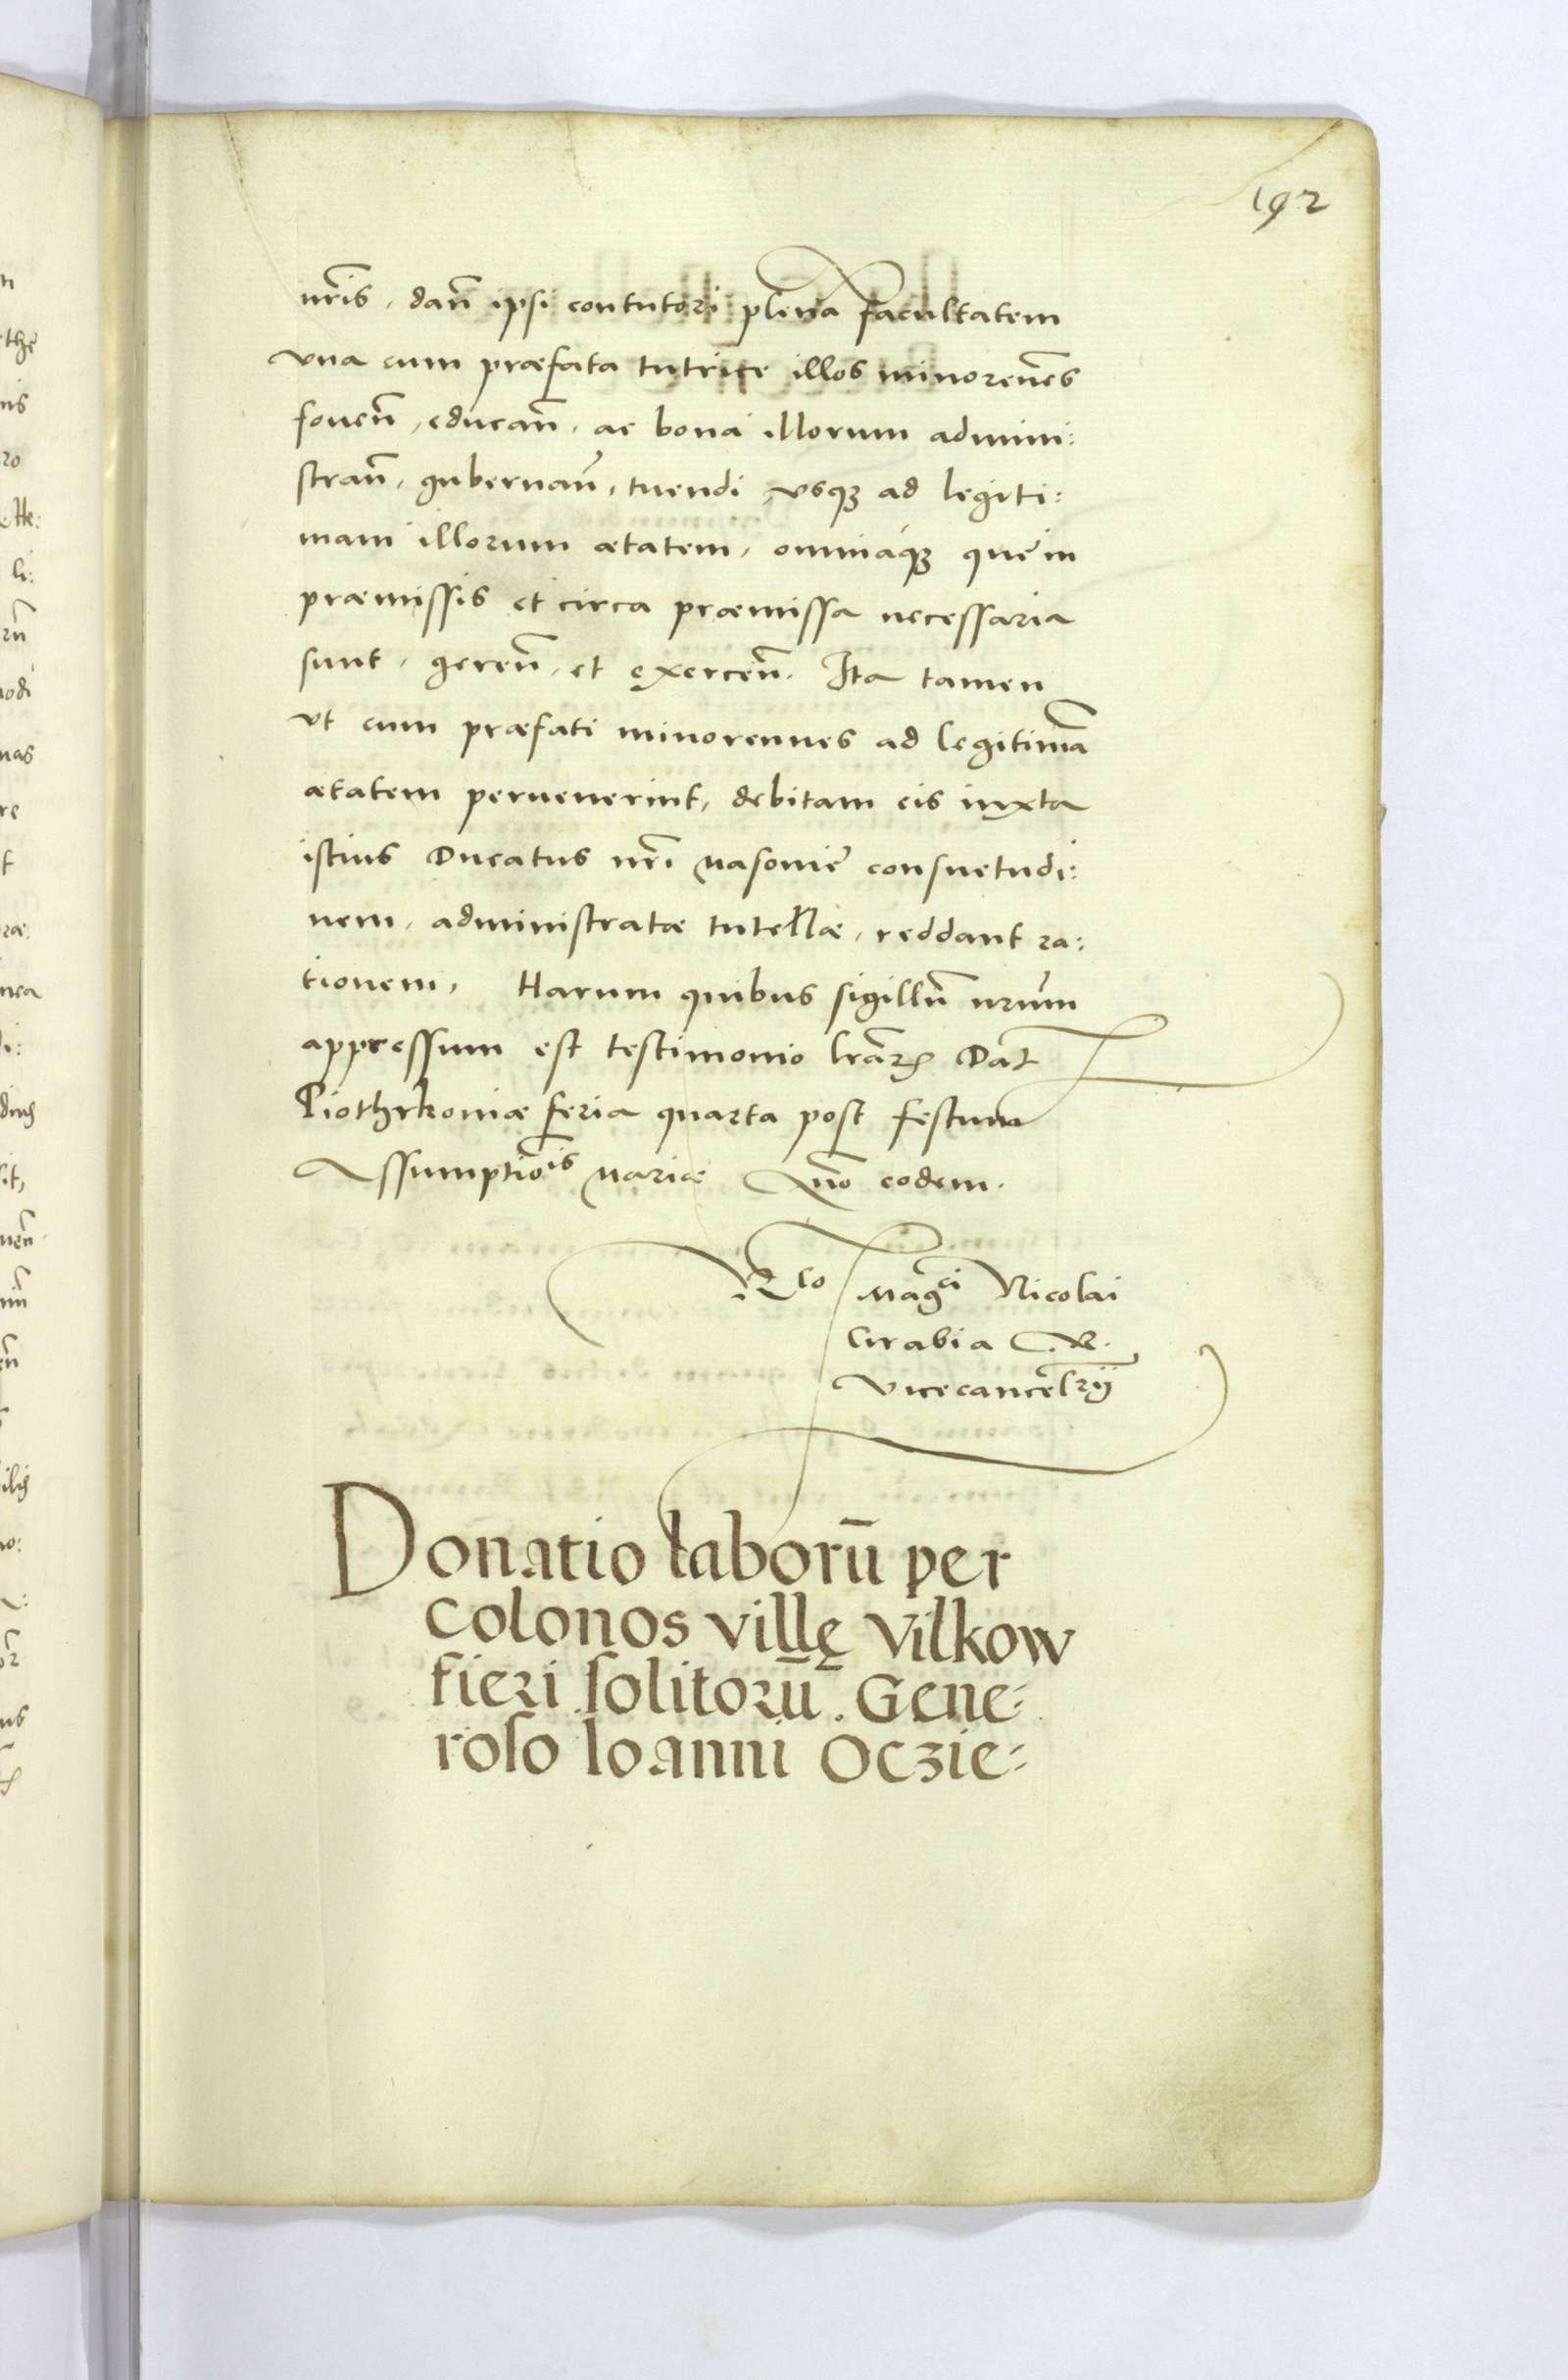 192
nr̃is, dañ ipsi contutori plena facultatem
vna cum præfata tutrice illos minoreñes
foueñ, educañ, ac bona illorum admini:
strañ, gubernañ, tuendi, vsqꝫ ad legiti:
mam illorum ætatem, omniaqꝫ que in
præmissis et circa præmissa necessaria
sunt, gereñ, et exerceñ. Ita tamen
vt cum præfati minorennes ad legitimā
ætatem peruenerint, debitam eis iuxta
istius Ducatus nr̃i Masouie consuetudi:
nem, administratæ tutellæ, reddant ra:
tionem, Harum quibus sigillū nr̃um
appressum est testimonio lr̃aꝝ Dat̃
Piothrkoniæ feria quarta post festum
Assumptiõis Mariæ Año eodem.
Rlo Magci Nicolai
Grabia C. R.
Vicecancelrij
Donatio laborū per
colonos villę Vilkow
fieri solitorū. Gene:
roso Ioanni Oczie: